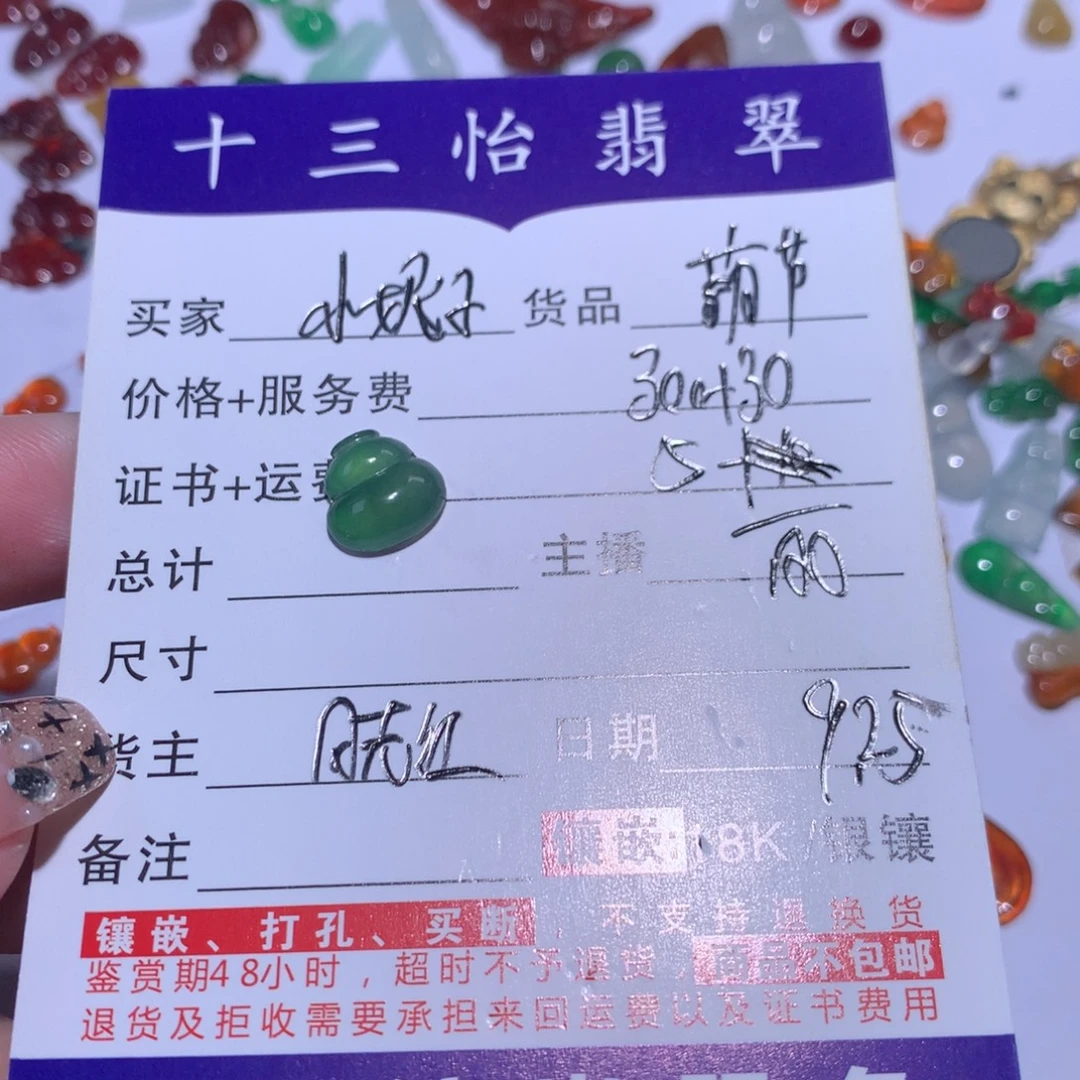 十三怡翡翠
买家 小妮子 货品
价格+服务费 300+30
证书+运费 5+
总计 主播
尺寸
货主 日期 9.25
备注 镶嵌 18K/银镶
镶嵌、打孔、买断,不支持退换货
鉴赏期48小时,超时不予退货,商品不包邮
退货及拒收需要承担来回运费以及证书费用